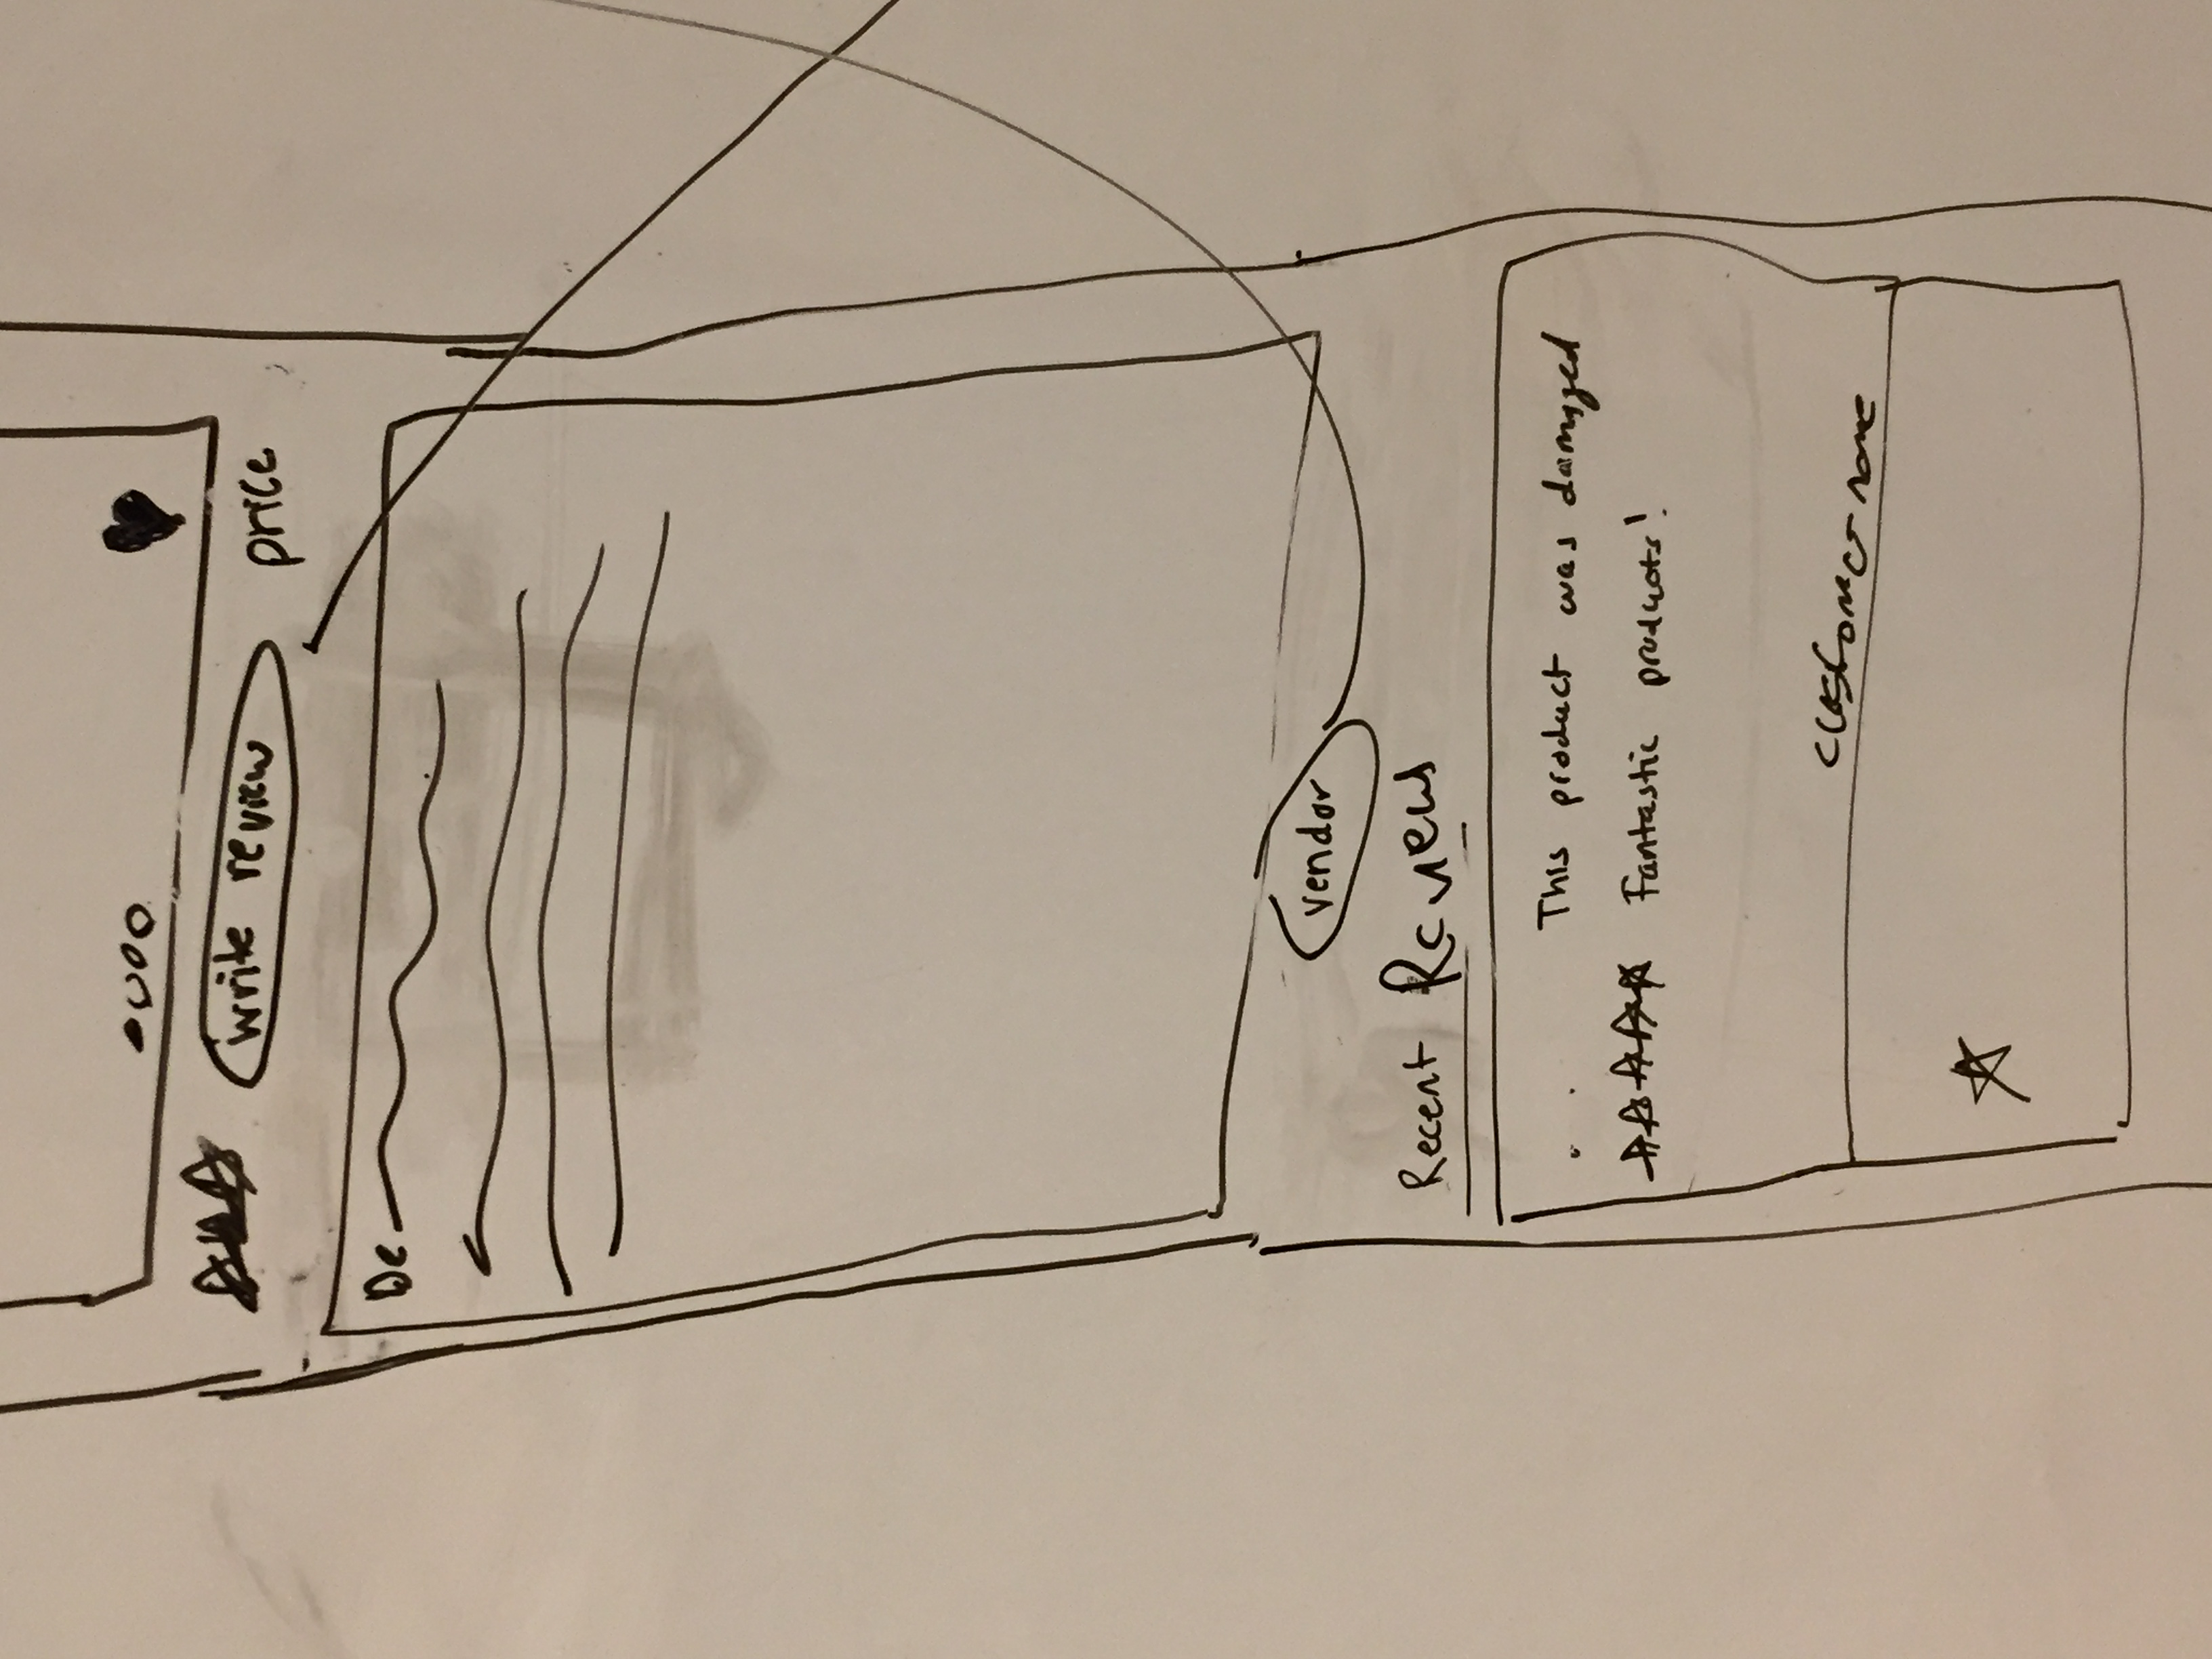 write review
price
De
vendor
Recent Reviews
This product was damaged
Fantastic products!
customer name